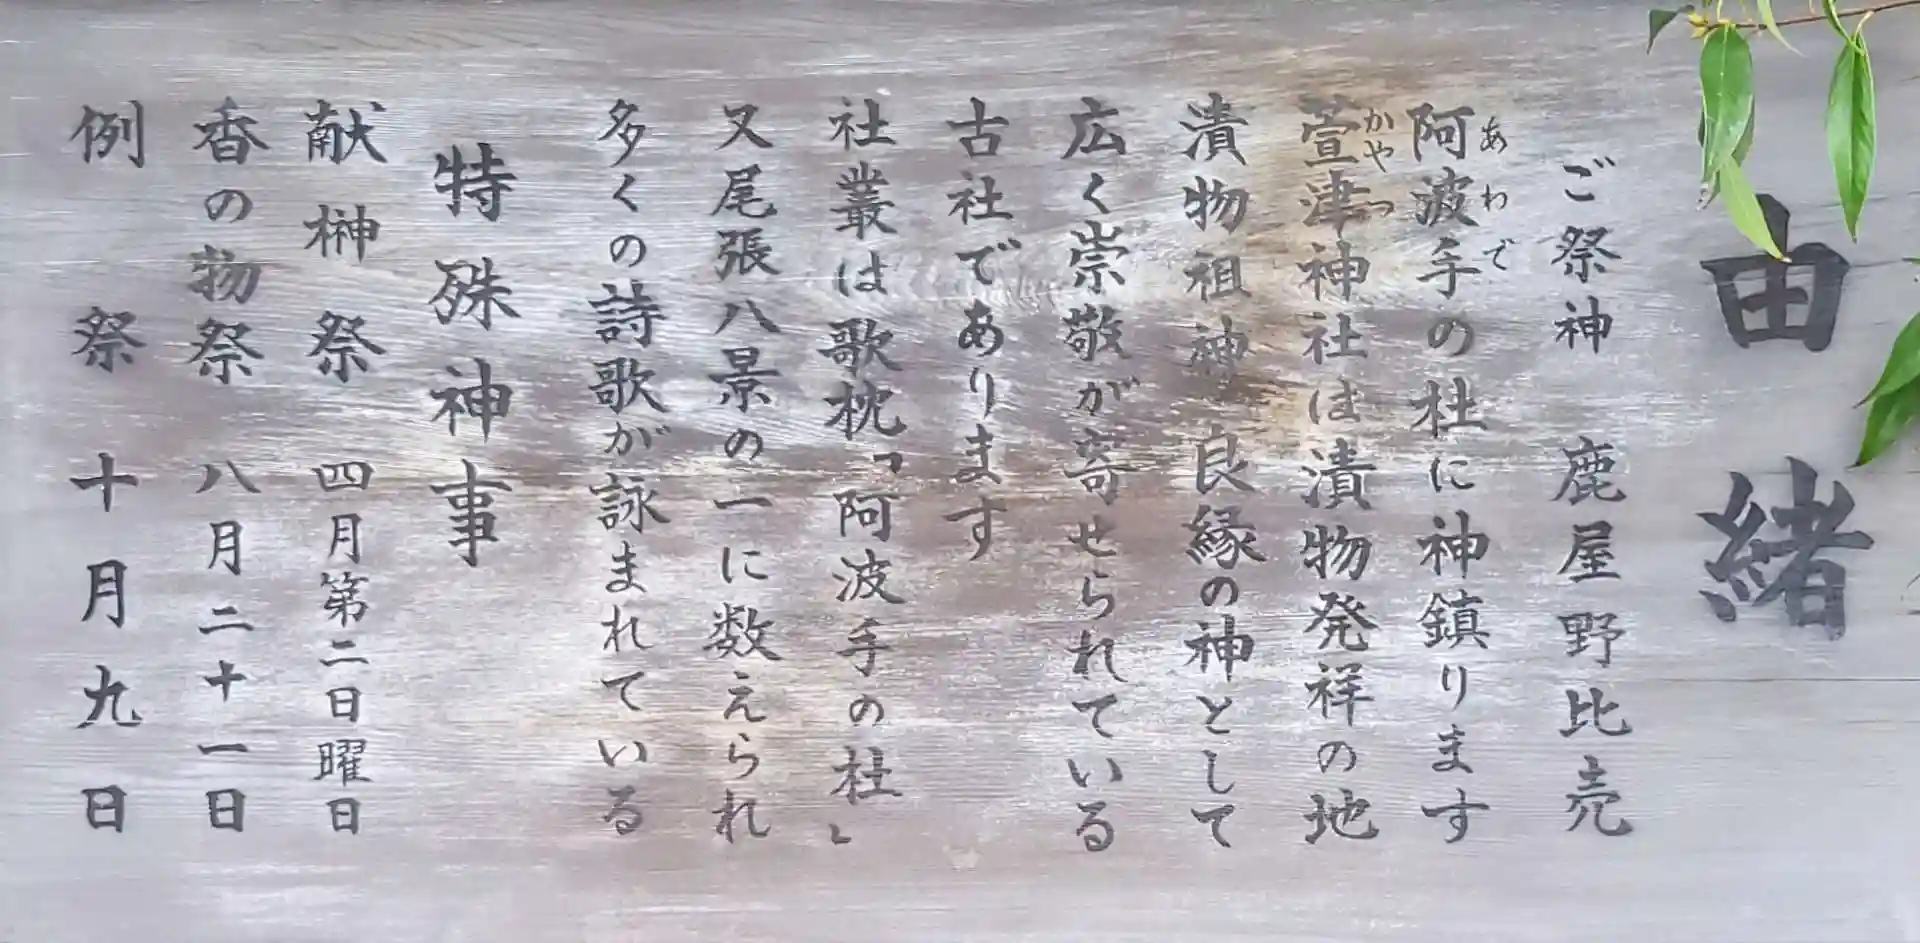 由緒
ご祭神 鹿屋野比売
阿波手の杜に神鎮ります
あわで
萱津神社は漬物発祥の地
かやつ
漬物祖神 良縁の神として
広く崇敬が寄せられている
古社であります
社叢は歌枕「阿波手の杜」
又尾張八景の一に数えられ
多くの詩歌が詠まれている
特殊神事
献榊祭 四月第二日曜日
香の物祭 八月二十一日
例祭 十月九日